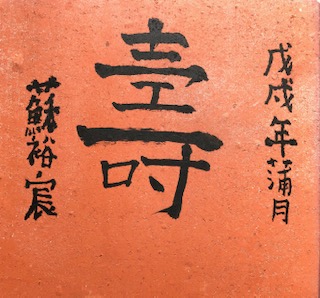 戊戌年蒲月
壽
蘇裕宸